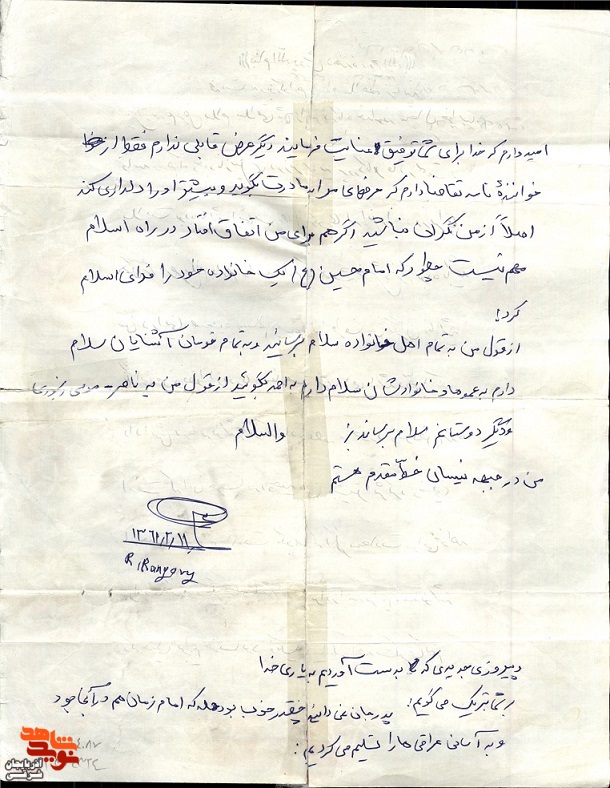 امیدوارم که خدا برای شما توفیق عنایت فرمایند دیگر عرض قابلی ندارم فقط از
خوانندهٔ نامه تقاضا دارم که حرفهای مرا به مادرم بگوید و بیشتر او را دلداری کند
اصلاً از من نگران نباشید اگر هم برای من اتفاق افتاد در راه اسلام
مهم نیست چطور که امام حسین (ع) یک خانواده خود را فدای اسلام
کرد!
از قول من به تمام اهل خانواده سلام برسانید و به تمام قومان آشنایان سلام
دارم به عموها و خانوادشان سلام دارم به احمد بگوئید از قول من به ناصر - موسی
و دیگر دوستانم سلام برساند والسلام
من در جبهه خط مقدم هستم
۱۳۶۱/۲/۱۱
R. Rangery
و پیروزی جدیدی که بدست آوردیم به یاری خدا
تبریک می گویم! پدر جان نمی دانید چقدر خوب بود مثله که امام زمان هم در آنجا بود
و به آسانی عراقی ها را تسلیم می کردیم:
نوید شاهد
آذربایجان شرقی